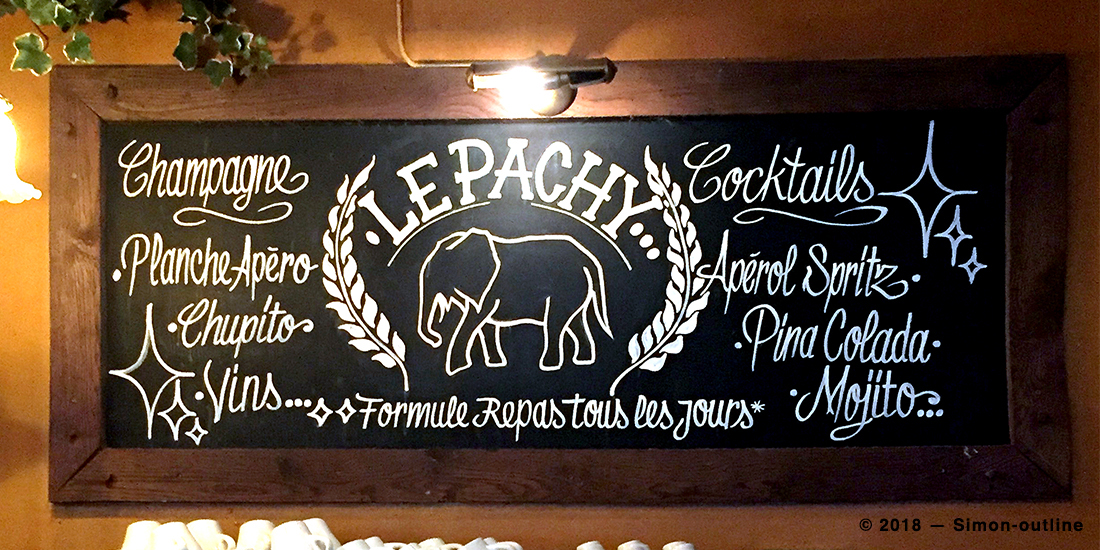 Champagne
·Planche Apéro
·Chupito·
·Vins...
·LE PACHY...
Cocktails
Apérol Spritz·
·Pina Colada·
·Mojito...
Formule Repas tous les jours*
© 2018 — Simon-outline